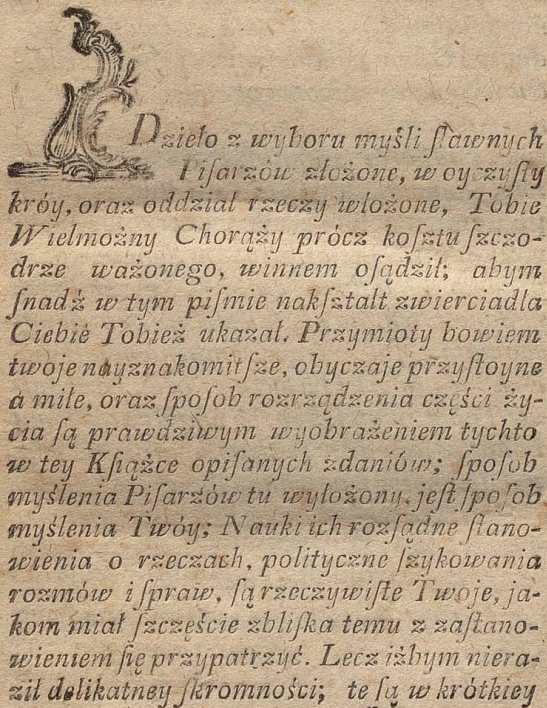 Dzieło z wyboru myśli ſławnych
Piſarzów złożone, w oyczyſty
króy, oraz oddział rzeczy włożone, Tobie
Wielmożny Chorąży prócz koſztu ſzczo-
drze ważonego, winnem oſądził; abym
ſnadź w tym piſmie nakſztalt zwierciadla
Ciebie Tobież ukazał. Przymioty bowiem
twoje nayznakomitſze, obyczaje przyſtoyne
a miłe, oraz ſpoſob rozrządzenia części ży-
cia ſą prawdziwym wyobrażeniem tychto
w tey Kſiążce opiſanych zdaniów; ſpoſob
myślenia Piſarzów tu wyłożony, jeſt ſpoſob
myślenia Twóy; Nauki ich rozſądne ſtano-
wienia o rzeczach, polityczne ſzykowania
rozmów i ſpraw, ſą rzeczywiſte Twoje, ja-
kom miał ſzczęście zbliſka temu z zaſtano-
wieniem ſię przypatrzyć. Lecz iżbym niera-
ził delikatney ſkromności; te ſą w krótkiey